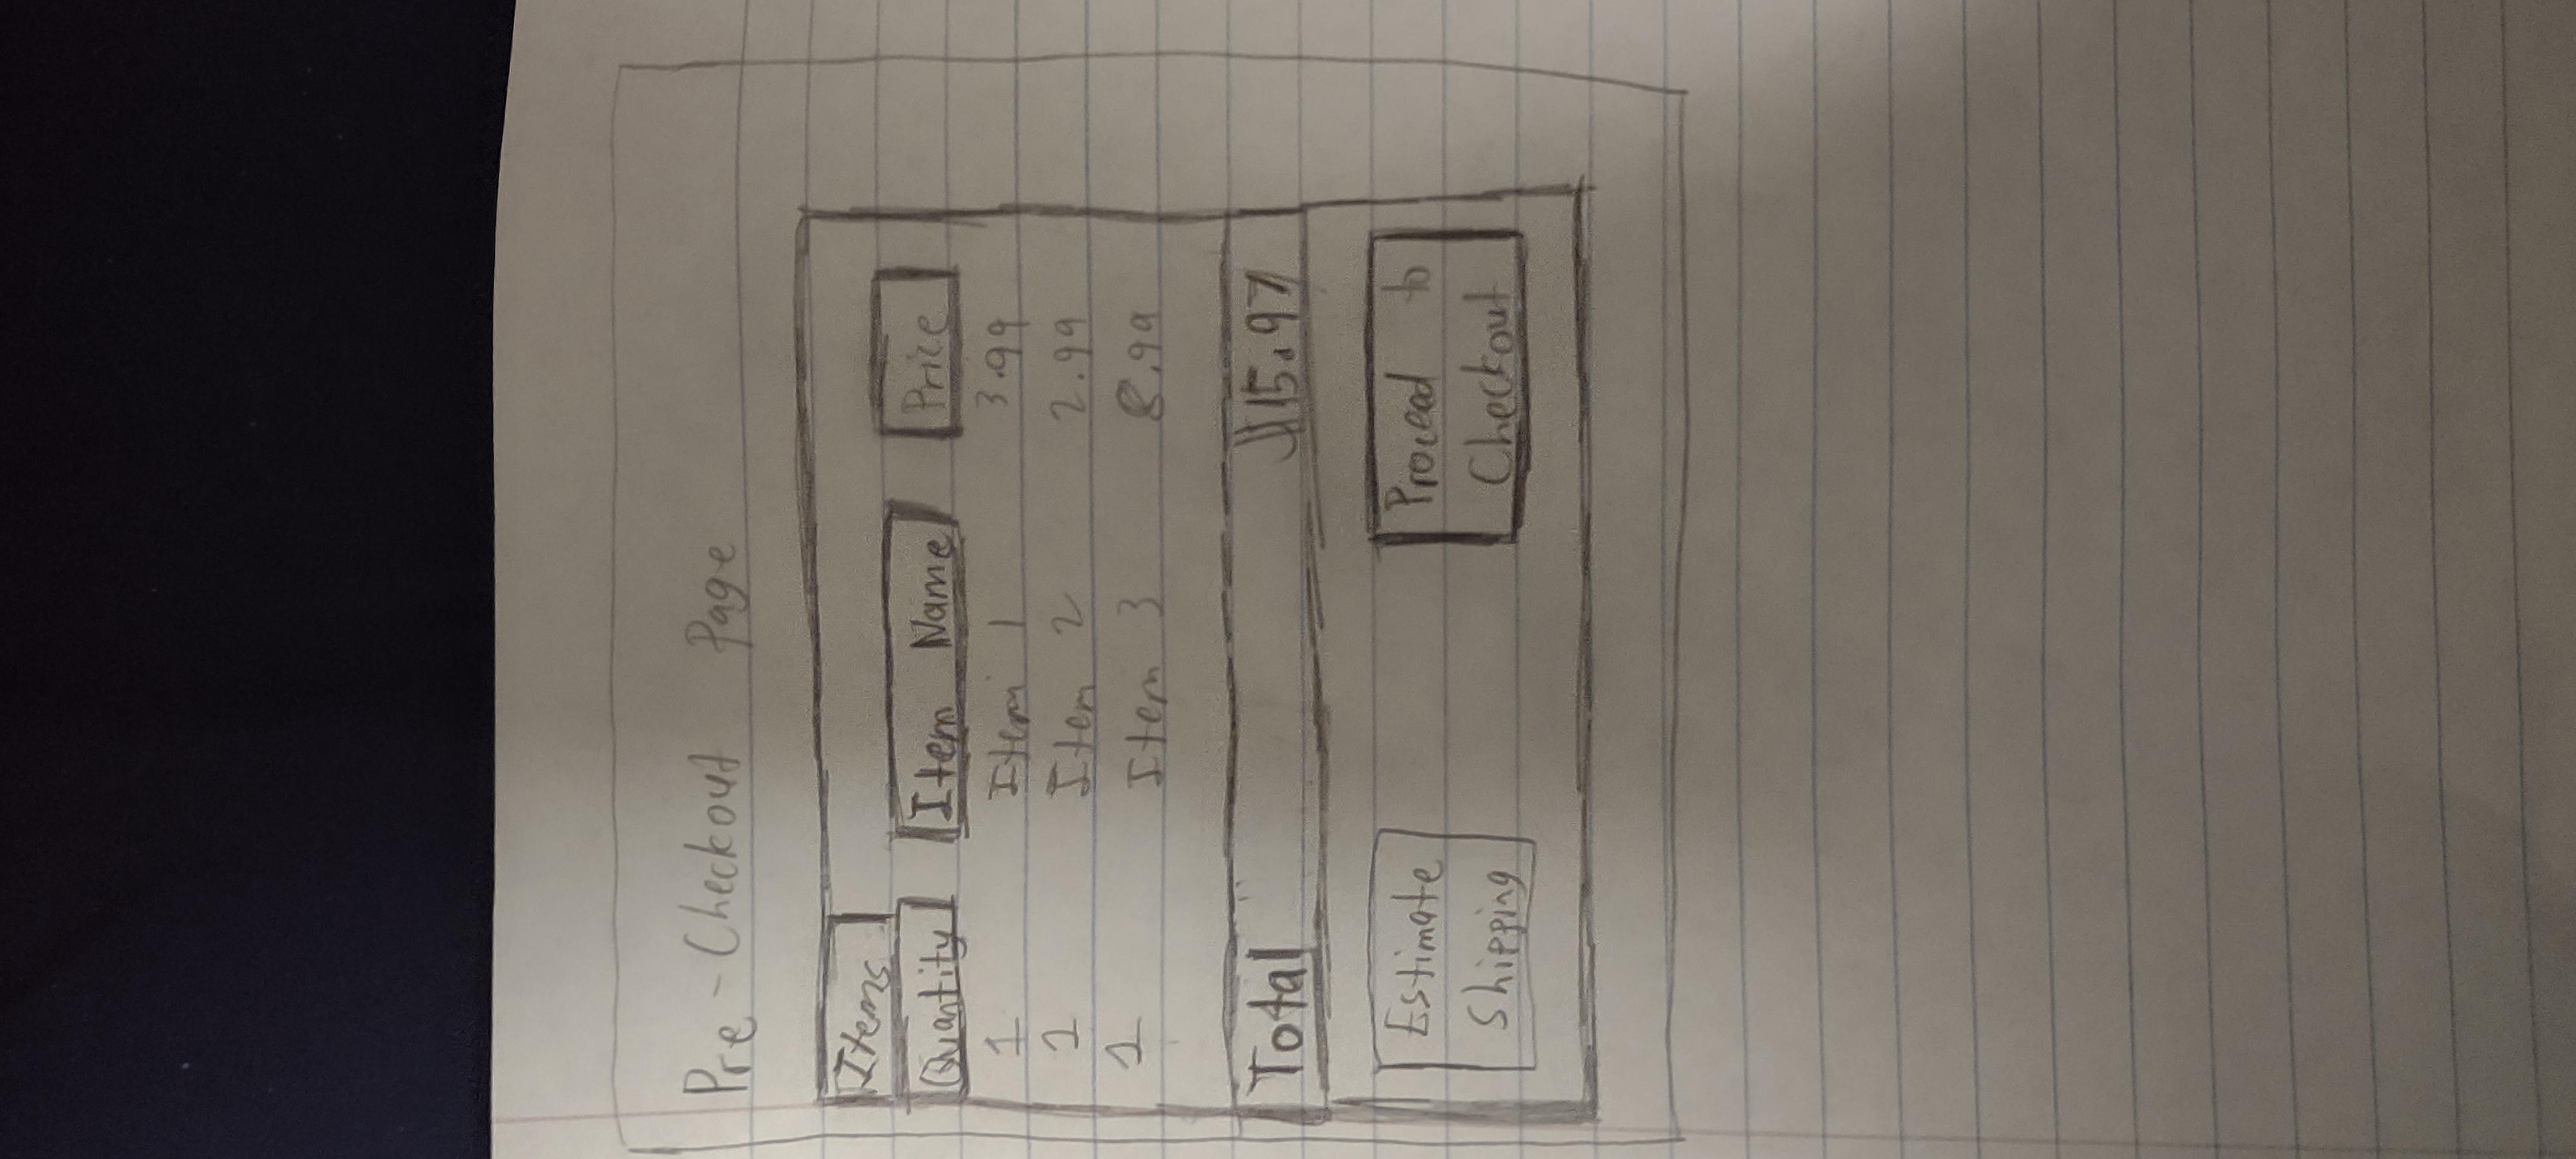 Pre-Checkout Page
Items
Quantity Item Name Price
1 Item 1 3.99
1 Item 2 2.99
1 Item 3 8.99
Total $15.97
Estimate Shipping
Proceed to Checkout